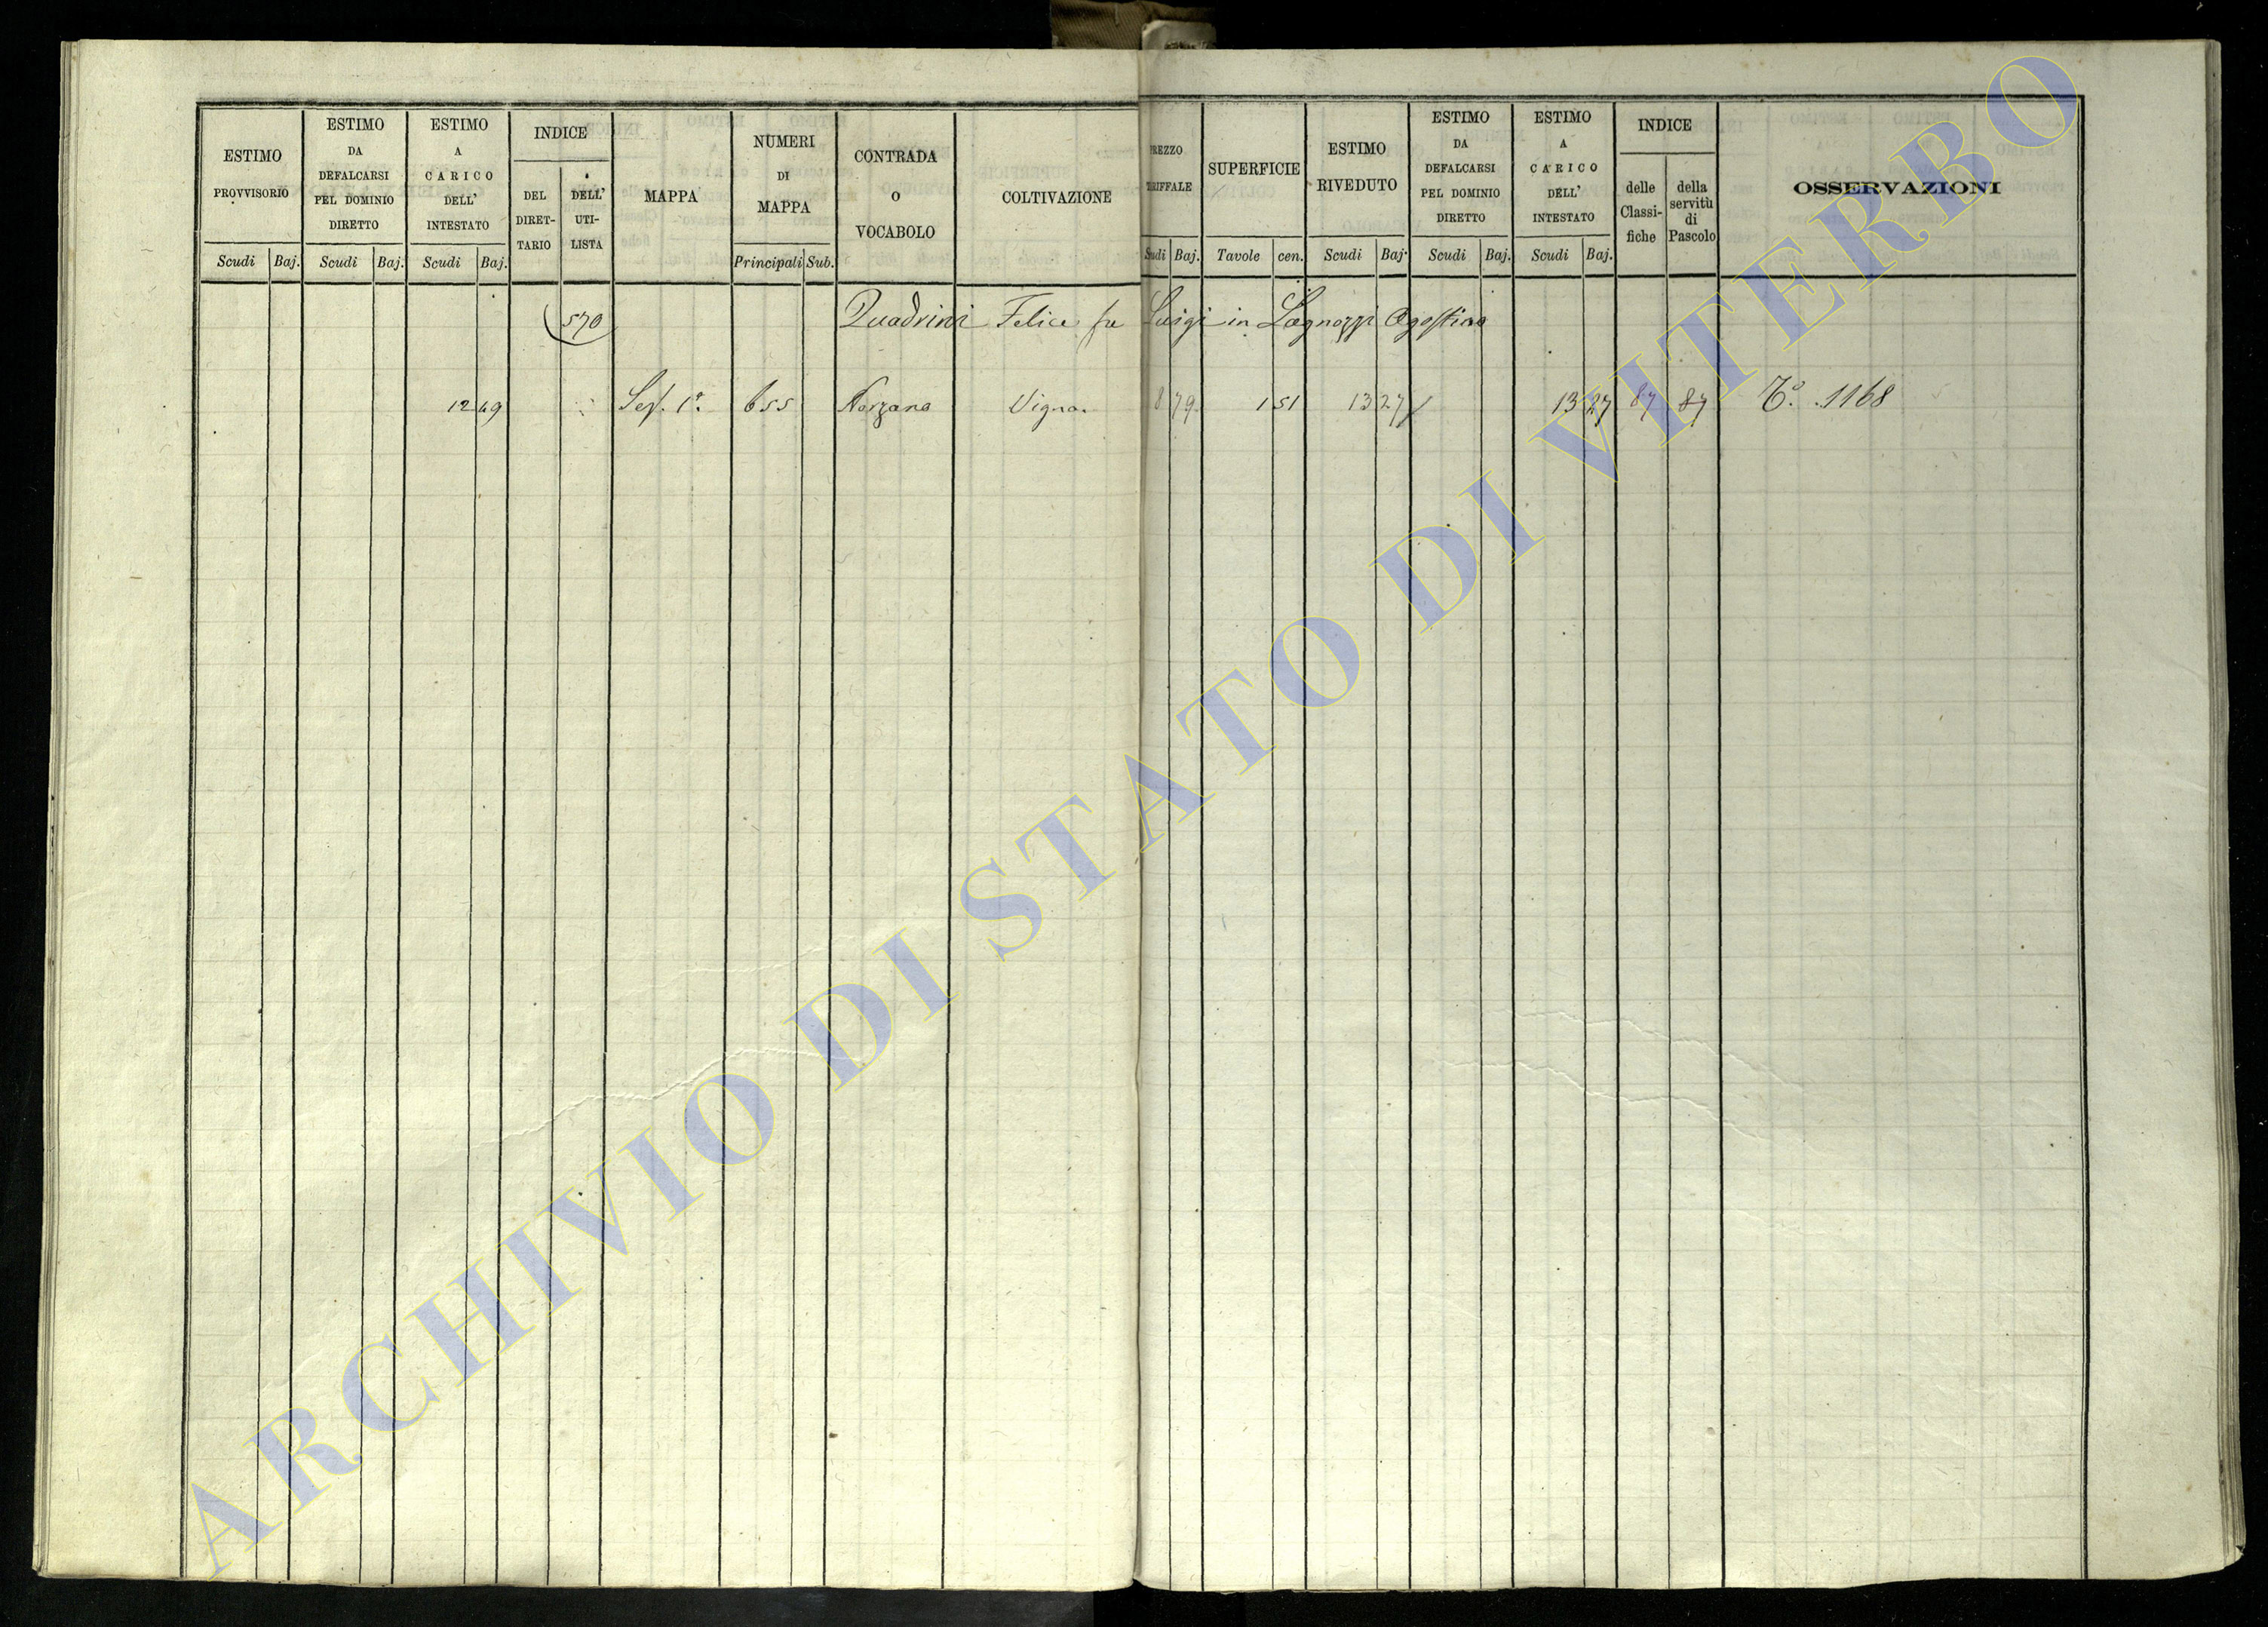 ESTIMO PROVVISORIO
Scudi Baj.
ESTIMO DA DEFALCARSI PEL DOMINIO DIRETTO
Scudi Baj.
ESTIMO A CARICO DELL' INTESTATO
Scudi Baj.
INDICE
DEL DIRET-TARIO
DELL' UTI-LISTA
MAPPA
NUMERI DI MAPPA
Principali Sub.
CONTRADA O VOCABOLO
COLTIVAZIONE
PREZZO TARIFFALE
Scudi Baj.
SUPERFICIE
Tavole cen.
ESTIMO RIVEDUTO
Scudi Baj.
ESTIMO DA DEFALCARSI PEL DOMINIO DIRETTO
Scudi Baj.
ESTIMO A CARICO DELL' INTESTATO
Scudi Baj.
INDICE
delle Classi-fiche
della servitù di Pascolo
OSSERVAZIONI
570 Quadrini Felice fu Luigi in Lagnozzi Agostino
12 49 Sez. 1ª 655 Vigna 8 79 1 51 13 27 13 27 87 87 1168
ARCHIVIO DI STATO DI VITERBO